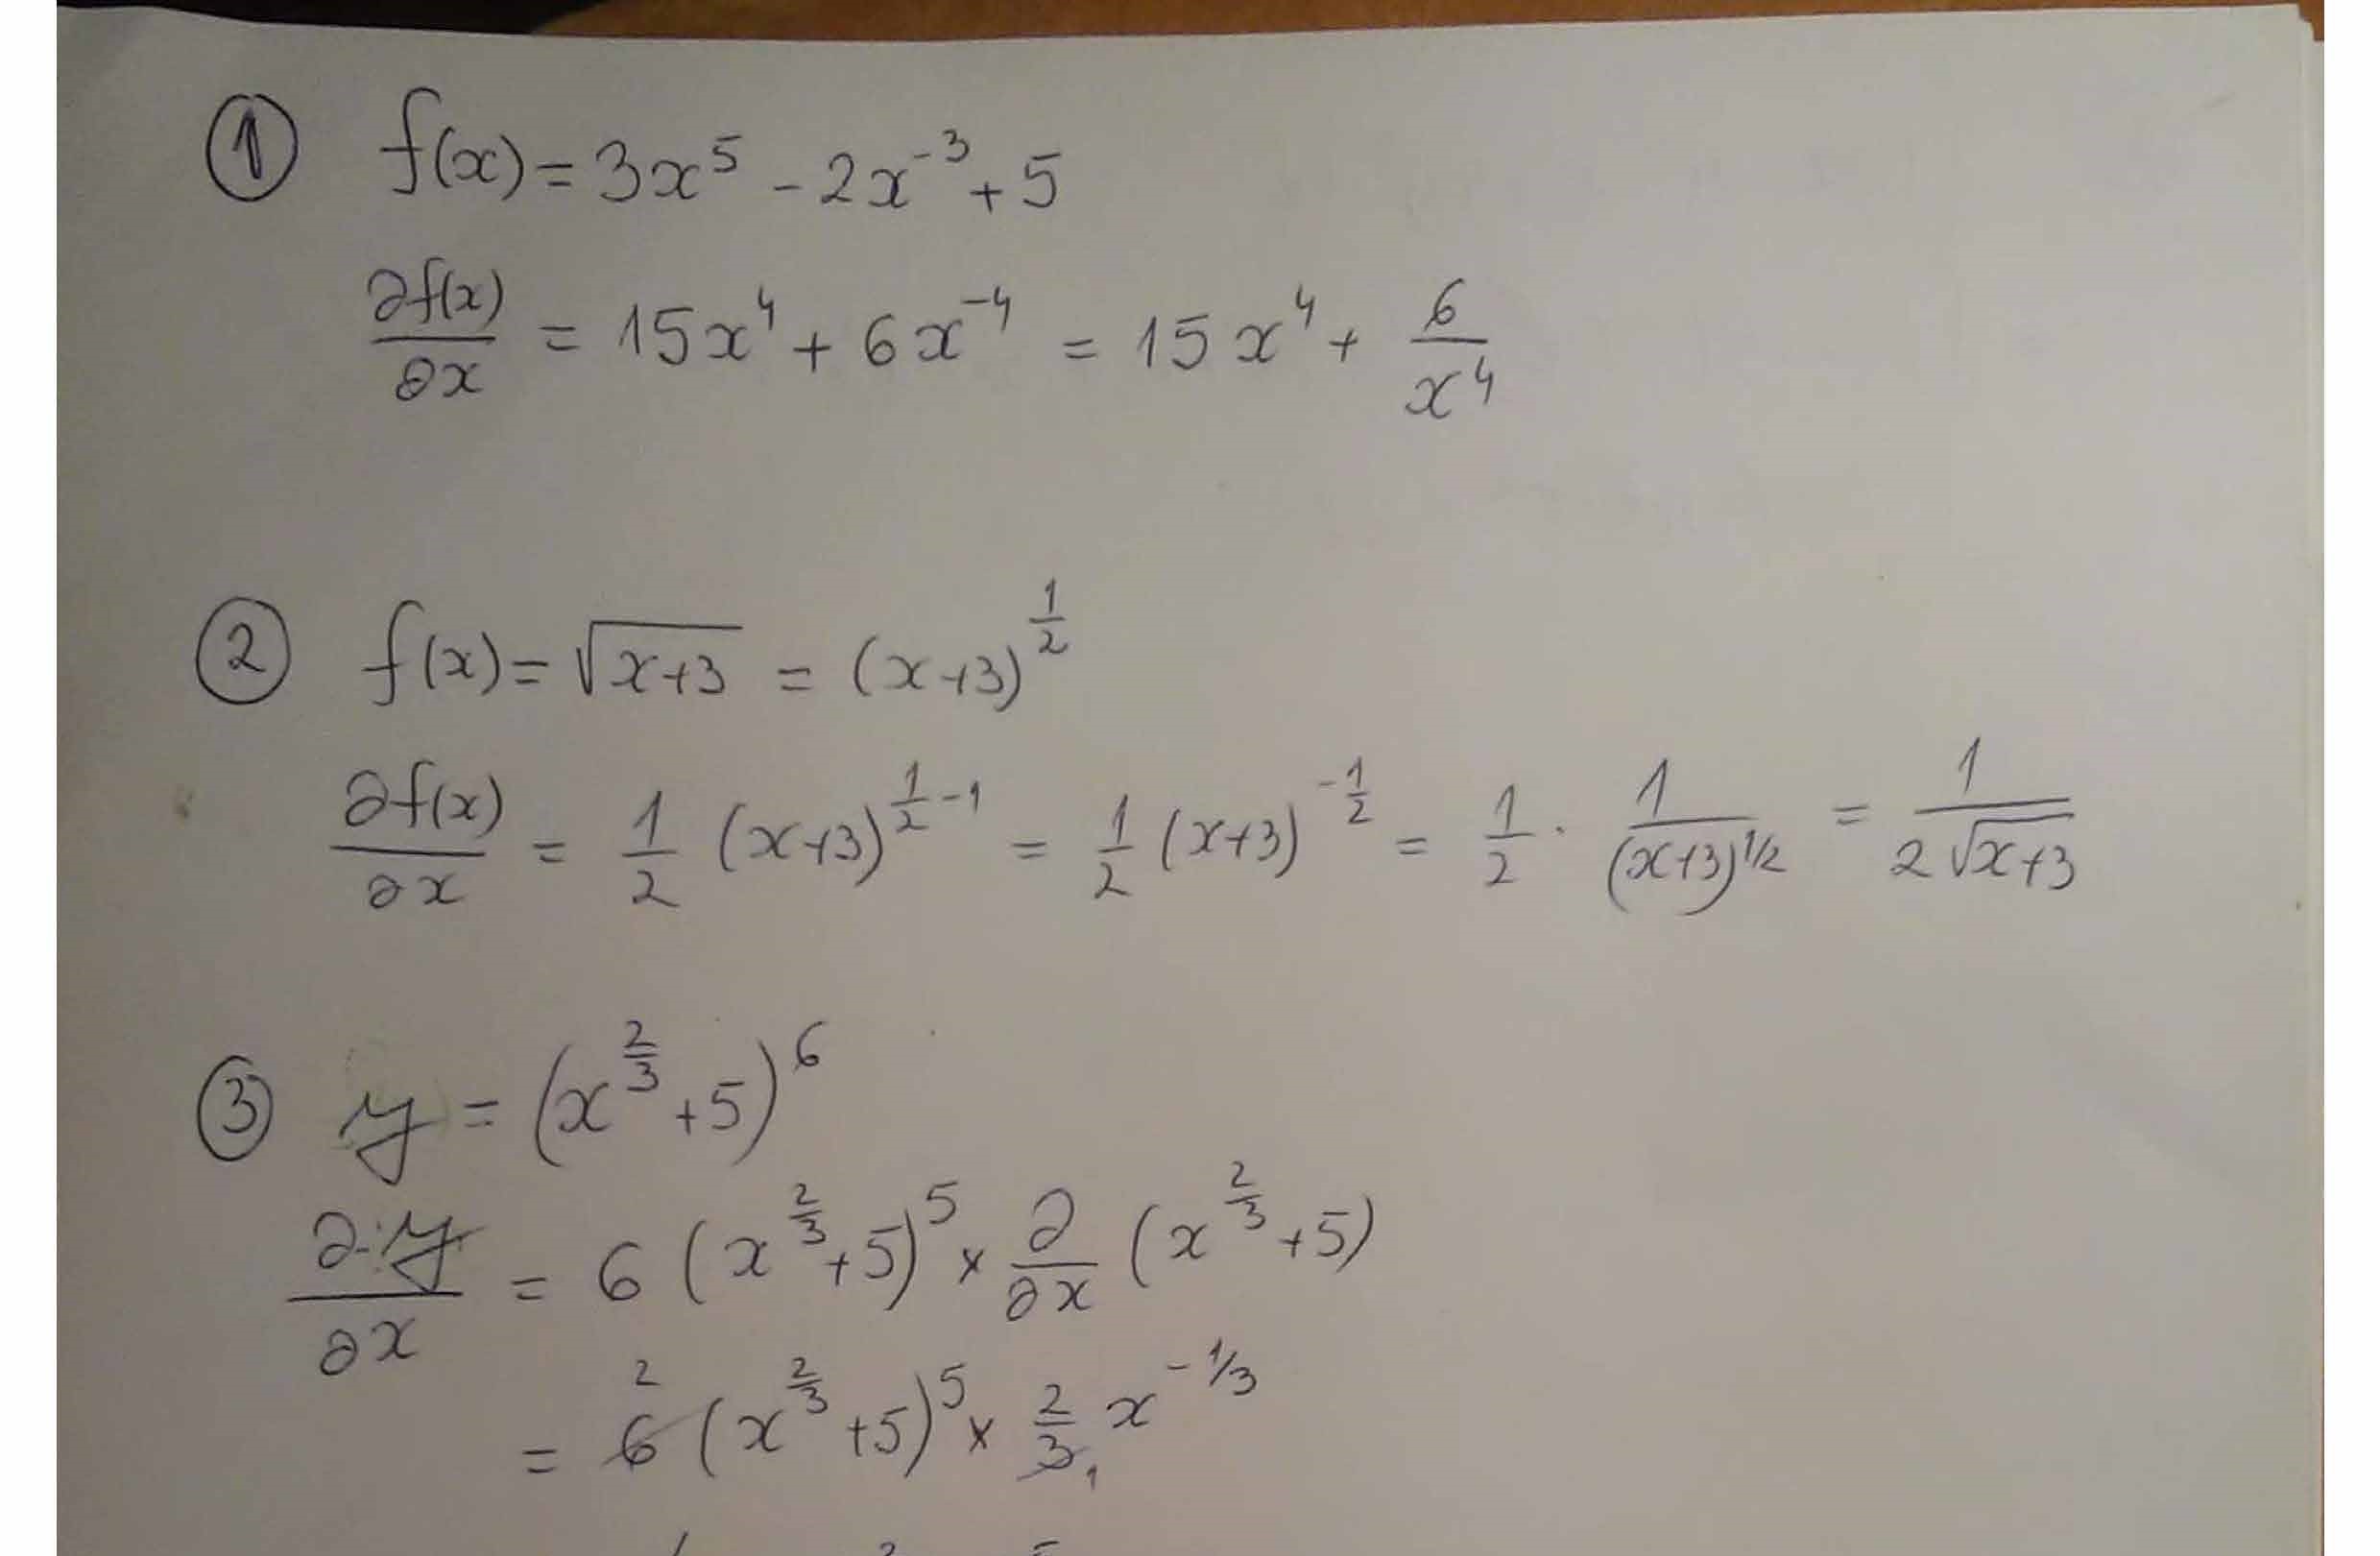 ① f(x) = 3x⁵ - 2x⁻³ + 5
∂f(x)/∂x = 15x⁴ + 6x⁻⁴ = 15x⁴ + 6/x⁴
② f(x) = √(x+3) = (x+3)^(1/2)
∂f(x)/∂x = 1/2 (x+3)^(1/2 - 1) = 1/2 (x+3)^(-1/2) = 1/2 · 1/(x+3)^(1/2) = 1/(2√(x+3))
③ y = (x^(2/3) + 5)⁶
∂y/∂x = 6 (x^(2/3) + 5)⁵ × ∂/∂x (x^(2/3) + 5)
= 6̸ ² (x^(2/3) + 5)⁵ × 2/3̸ ₁ x^(-1/3)